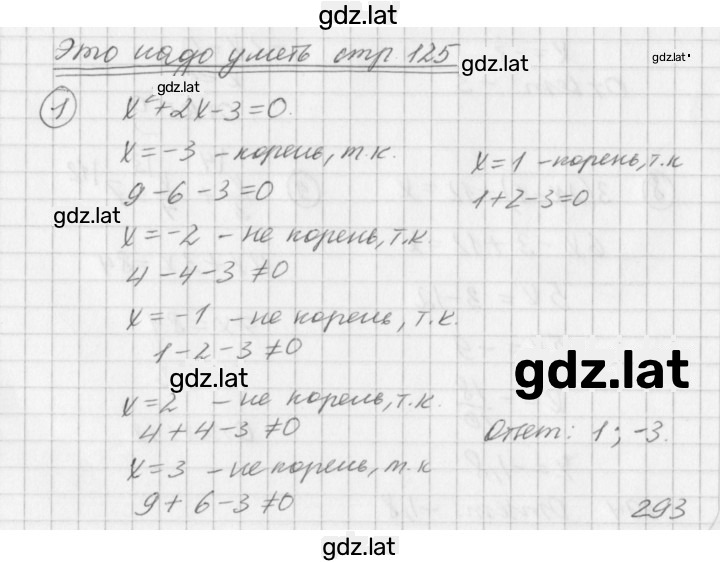 gdz.lat
Это надо уметь стр 125
gdz.lat
gdz.lat
gdz.lat
1 x²+2x-3=0.
x=-3 - корень, т.к.
9-6-3=0
x=1 - корень, т.к
1+2-3=0
gdz.lat
x=-2 - не корень, т.к.
4-4-3≠0
x=-1 - не корень, т.к.
1-2-3≠0
gdz.lat
gdz.lat
x=2 - не корень, т.к.
4+4-3≠0
Ответ: 1; -3.
x=3 - не корень, т.к
9+6-3≠0
293
gdz.lat